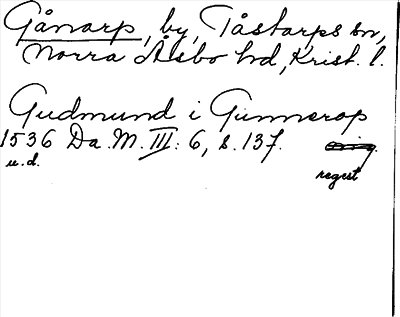 Gånarp, by, Tåstarps sn,
Norra Åsbo hd, Krist. l.
Gudmund i Gunnerop
1536 Da. M. III: 6, s. 137. orig.
u.d. regest